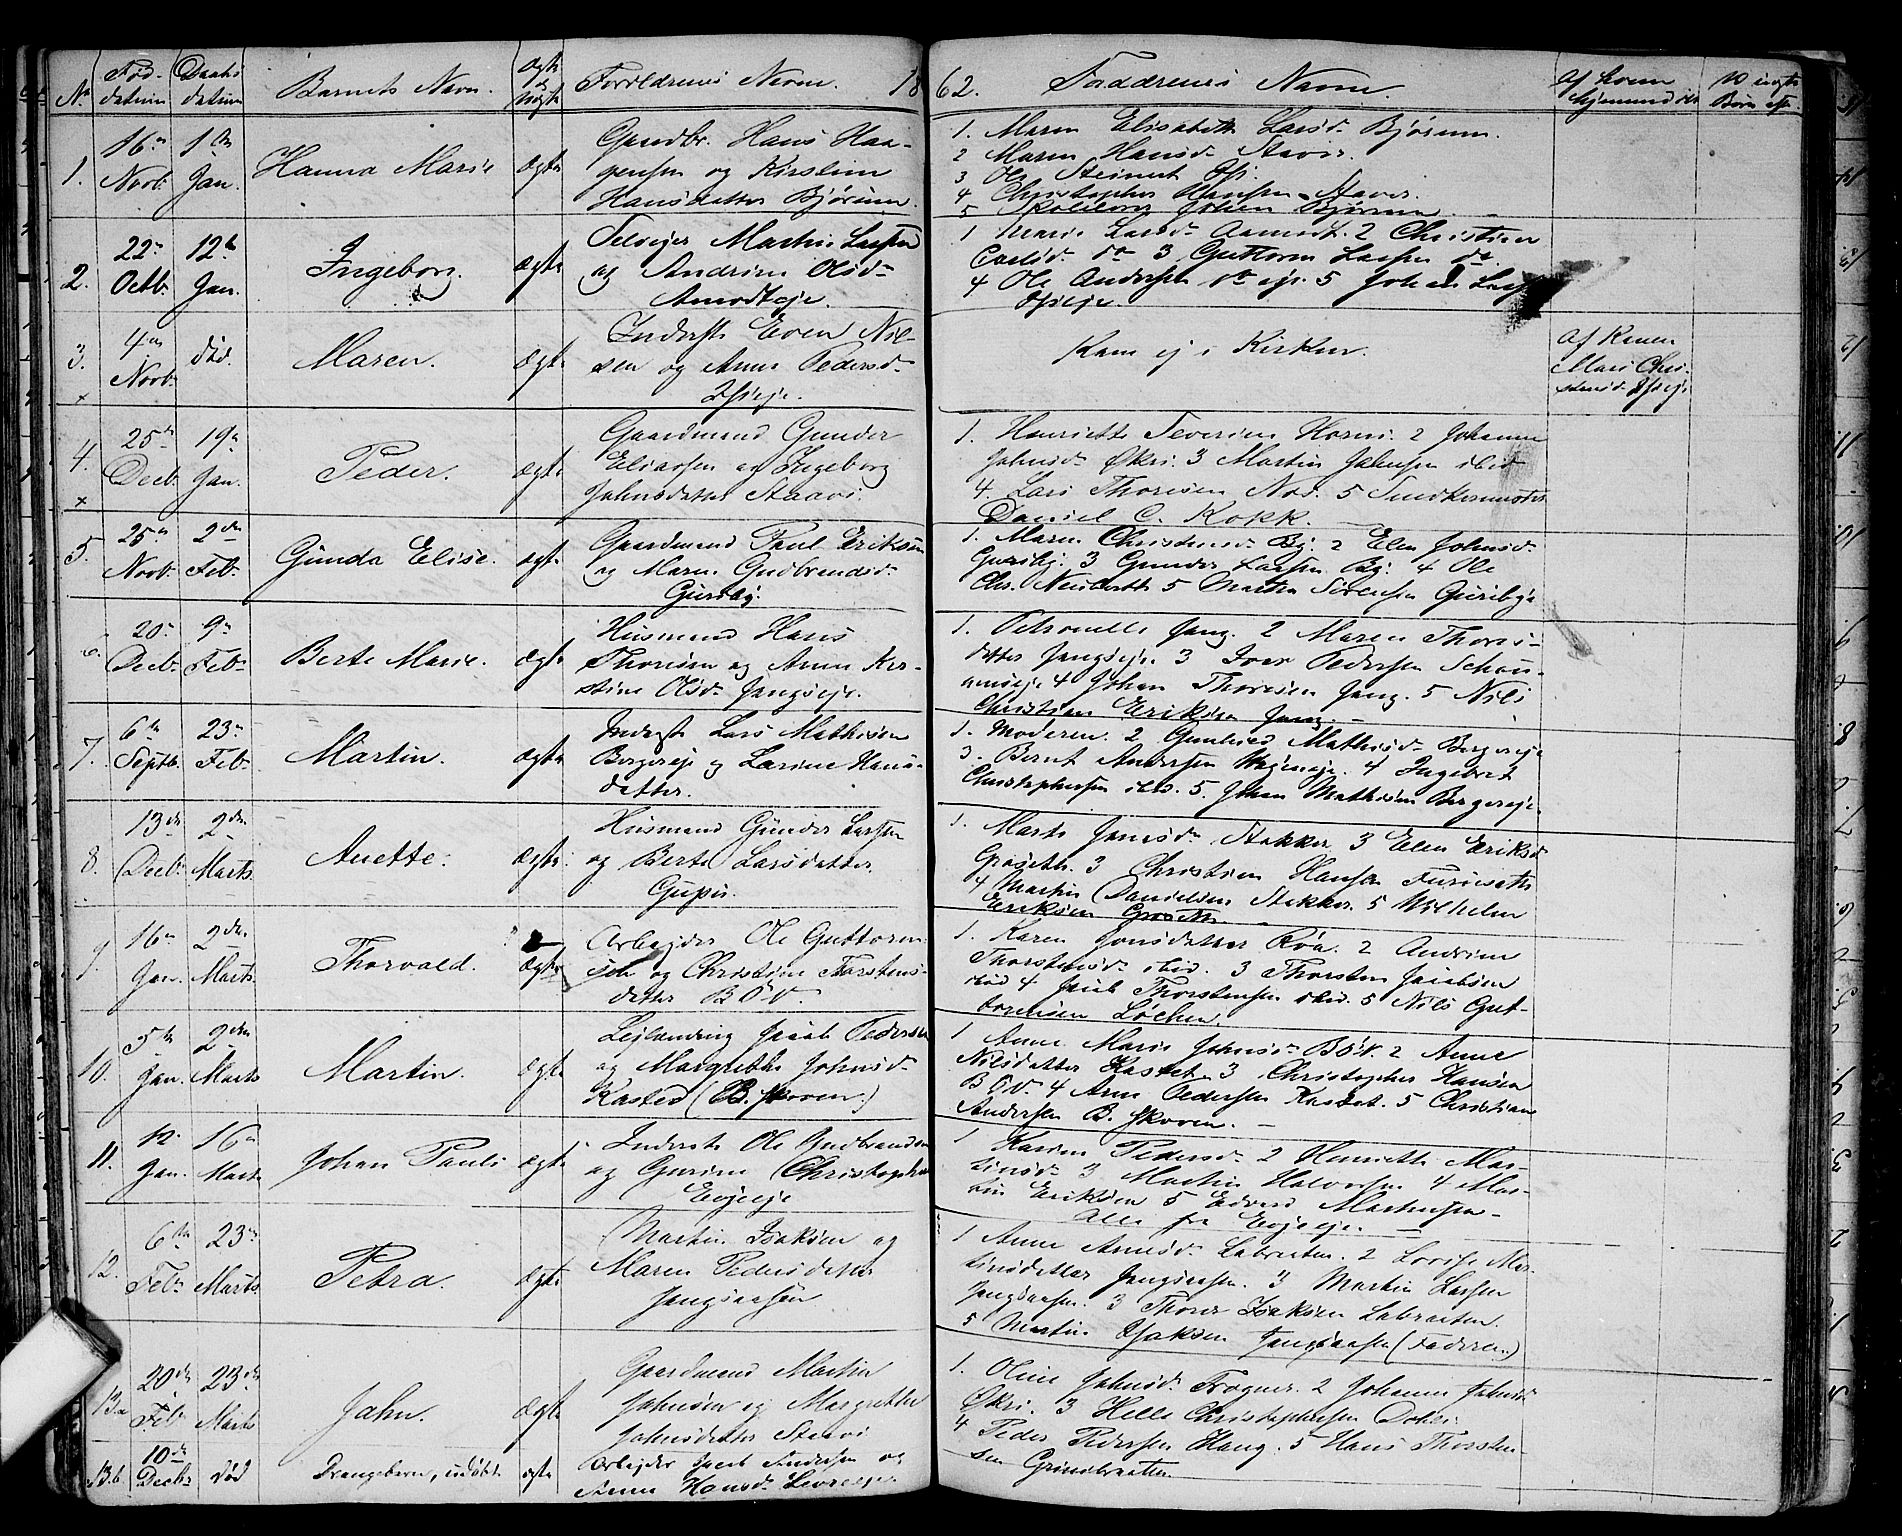 No Fød- datum Daabs datum Barnets Navn. Ægte el. uægte Forældrenes Navne. 18
62. Faddrenes Navne. Af hvem hjemmedøbt
1. 16de Novb. 1ste Jan. Hanna Marie ægte Gaardbr. Hans Haa-
gensen og Kirstine
Hansdatter Bjørum.
1. Maren Elisabeth Larsd. Bjørum.
2 Maren Hansd. Staver.
3 Ole Steinert
4 Christopher Hansen Staver.
5 Johan Bjørum
2. 22de Octb. 12te Jan. Ingeborg. ægte Selvejer Martin Larsen
og Andrine Olsd.
Amodteje.
1 Marie Larsd. Aamodt. 2 Christian
Carlsd. do 3 Guttorm Larsen do.
4 Ole Andersen do eje. 5 Johan Lars
3. 4de Novb. død. Maren. ægte Inderste Even Nil-
sen og Anne Pedersd.
Kom ej i Kirken.
Af Konen
Mari Chri-
stensd.
4. 25de Decb. 19de Jan. Peder. ægte Gaardmand Gunder
Eliassen og Ingeborg
Johnsdatter Staavi.
1. Henriette Severine Horni. 2 Johanne
Johnsd. Økri. 3 Martin Johnsen ibid
4. Lars Thoresen Nod. 5 Smedkermester
Daniel C. Kopk.
5. 25de Novb. 2den Feb. Gunda Elise. ægte Gaardmand Paul Eriksen
og Maren Gudbrandsd.
Guriby.
1. Maren Christensd. By. 2 Elen Johnsd.
Guriby. 3 Gunder Larsen By. 4 Ole
Chr. 5 Martin Sørensen Guriby
6. 20de Decb. 9de Feb. Berte Marie. ægte Husmand Hans
Thoresen og Anne Kir-
stine Olsd. Jongseje.
1. Petronelle Jong. 2 Maren Thores-
datter Jongseje. 3 Iver Pedersen Schou-
menseje 4 Johan Thoresen Jong. 5 Nils
Christian Eriksen Jong.
7. 6te Septb. 23de Feb. Martin. ægte Inderste Lars Mathisen
Bergereje og Larine Hans-
datter.
1. Moderen. 2 Gunhild Mathisd. Bergereje
3. Bernt Andersen 4 Ingebret
Christophersen ibid. 5. Johan Mathisen Bergereje
8. 13de Decb. 2den Marts Anette. ægte. Husmand Gunder Larsen
og Berte Larsdatter
Gupu.
1. Marte Jensd. Stokker. 3 Elen Eriksd.
Groseth. 3 Christian Hansen Furuseth
4 Martin Danielsen Stokker. 5 Wilhelm
Eriksen Groseth
9. 16de Jan. 2den Marts. Thorvald. ægte Arbejder Ole Guttorm-
sen og Christine Torstens-
datter BÖV.
1. Karen Jonsdatter Röa. 2 Andrine
Thorstensd. ibid. 3 Thorsten Jacobsen
ibid 4 Jacob Thorstensen ibid. 5 Nils Gut-
tormsen Løken.
10. 5te Jan. 2den Marts Martin. ægte Lejlænding Jacob Pedersen
og Margrethe Johnsd.
Kasted (B. skoven.)
1 Anne Marie Johnsd. BÖV. 2 Anne
Nilsdatter Kastet. 3 Christopher Hansen
BÖV. 4 Arne Pedersen Kastet. 5 Christian
Andersen B. skoven.
11. 12. Jan. 16de Marts Johan Pauli ægte Inderste Ole Gudbrandsen
og Gurine Christophers
Evjeeje
1 Karine Pedersd. 2 Henriette Mar-
tinsd. 3 Martin Halvorsen 4 Mar-
tin Eriksen 5 Edvard Martinsen
alle fra Evjeeje.
12. 6te Feb. 23de Marts Petra. ægte Martin Isaksen og
Maren Pedersdatter
Jongsaasen
1 Anne Arnesd. Labraaten. 2 Lovise Mar-
tinsdatter Jongsaasen. 3 Martin Larsen
Jongsaasen. 3 Thorer Isaksen Labraaten.
5 Martin Isaksen Jongsaasen (Faderen.)
13a 20de Feb. 23de Marts John. ægte Gaardmand Martin
Johnsen og Margrethe
Johnsdatter Staavi
1. Oline Johnsd. Frogner. 2 Johanne Johnsd.
Økri. 3 Helle Christophersen Dohli
4 Peder Pedersen Haug. 5 Hans Thorsten-
sen Grinibraaten
13.b 10de Decb. død Drengebarn, udøbt ægte Arbejder Jacob Andersen og
Anne Hansd.